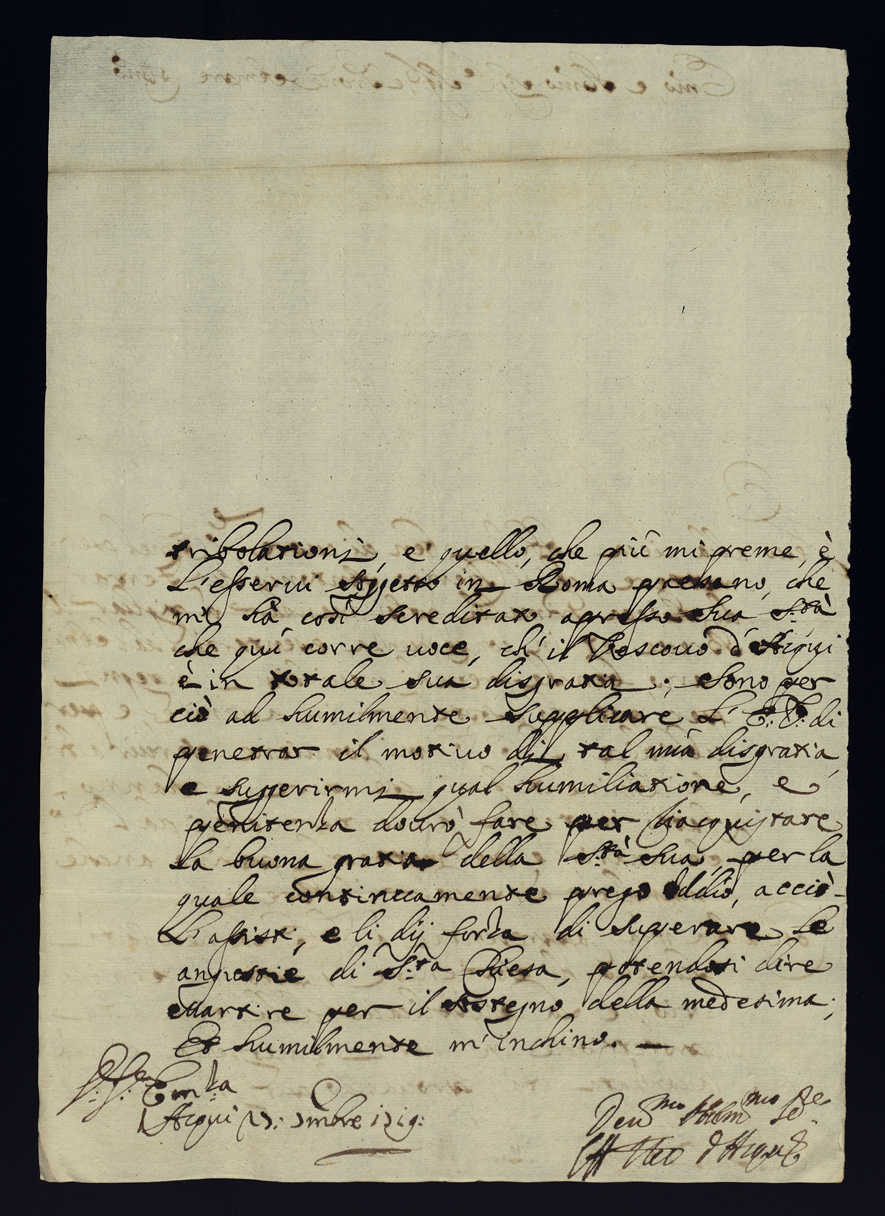 tribolationi, e quello, che più mi preme, è
l'esservi soggetto in Roma che
mi hà così screditat apresso sua S.tà
che qui corre voce, ch'il Vescovo d'Acqui
è in totale sua disgratia; sono per
ciò ad humilmente supplicare l'E. V. di
penetrar il motivo di tal mia disgratia,
e suggerirmi qual humiliatione, e
penitenza dovrò fare per riacquistare
la buona gratia della S.tà sua per la
quale continuamente prego Iddio, acciò
l'assisti, e li dij forza di superare le
angustie di S.ta Chiesa, potendosi dire
Martire per il sostegno della medesima;
Et humilmente m'inchino. —
Em.za
Acqui 9mbre
Dev.mo Hum.mo Se.re
d'Acqui